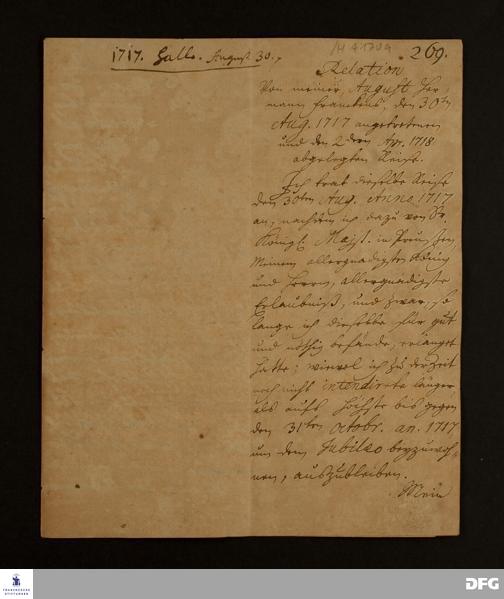 /H A 170a
1717. Halle. August. 30.
269.
Relation
Von meiner, August Her-
mann Franckens, den 30ten
Aug. 1717 angetretenen
und den 2 den Apr. 1718
abgelegten Reise.
Ich trat dieselbe Reise
den 30ten Aug. Anno 1717
an, nachdem ich dazu von Sr.
Königl. Majst. in Preußen,
Meinem allergnädigsten König
und Herrn, allergnädigste
Erlaubniß, und zwar, so
lange ich dieselbe für gut
und nöthig befände, erlanget
hatte; wiewol ich zu der Zeit
noch nicht intendirete länger
als aufs höchste bis gegen
den 31ten Octobr. an. 1717
um dem Jubilæo beyzuwoh-
nen, auszubleiben.
Mein
FRANCKESCHE
STIFTUNGEN
DFG